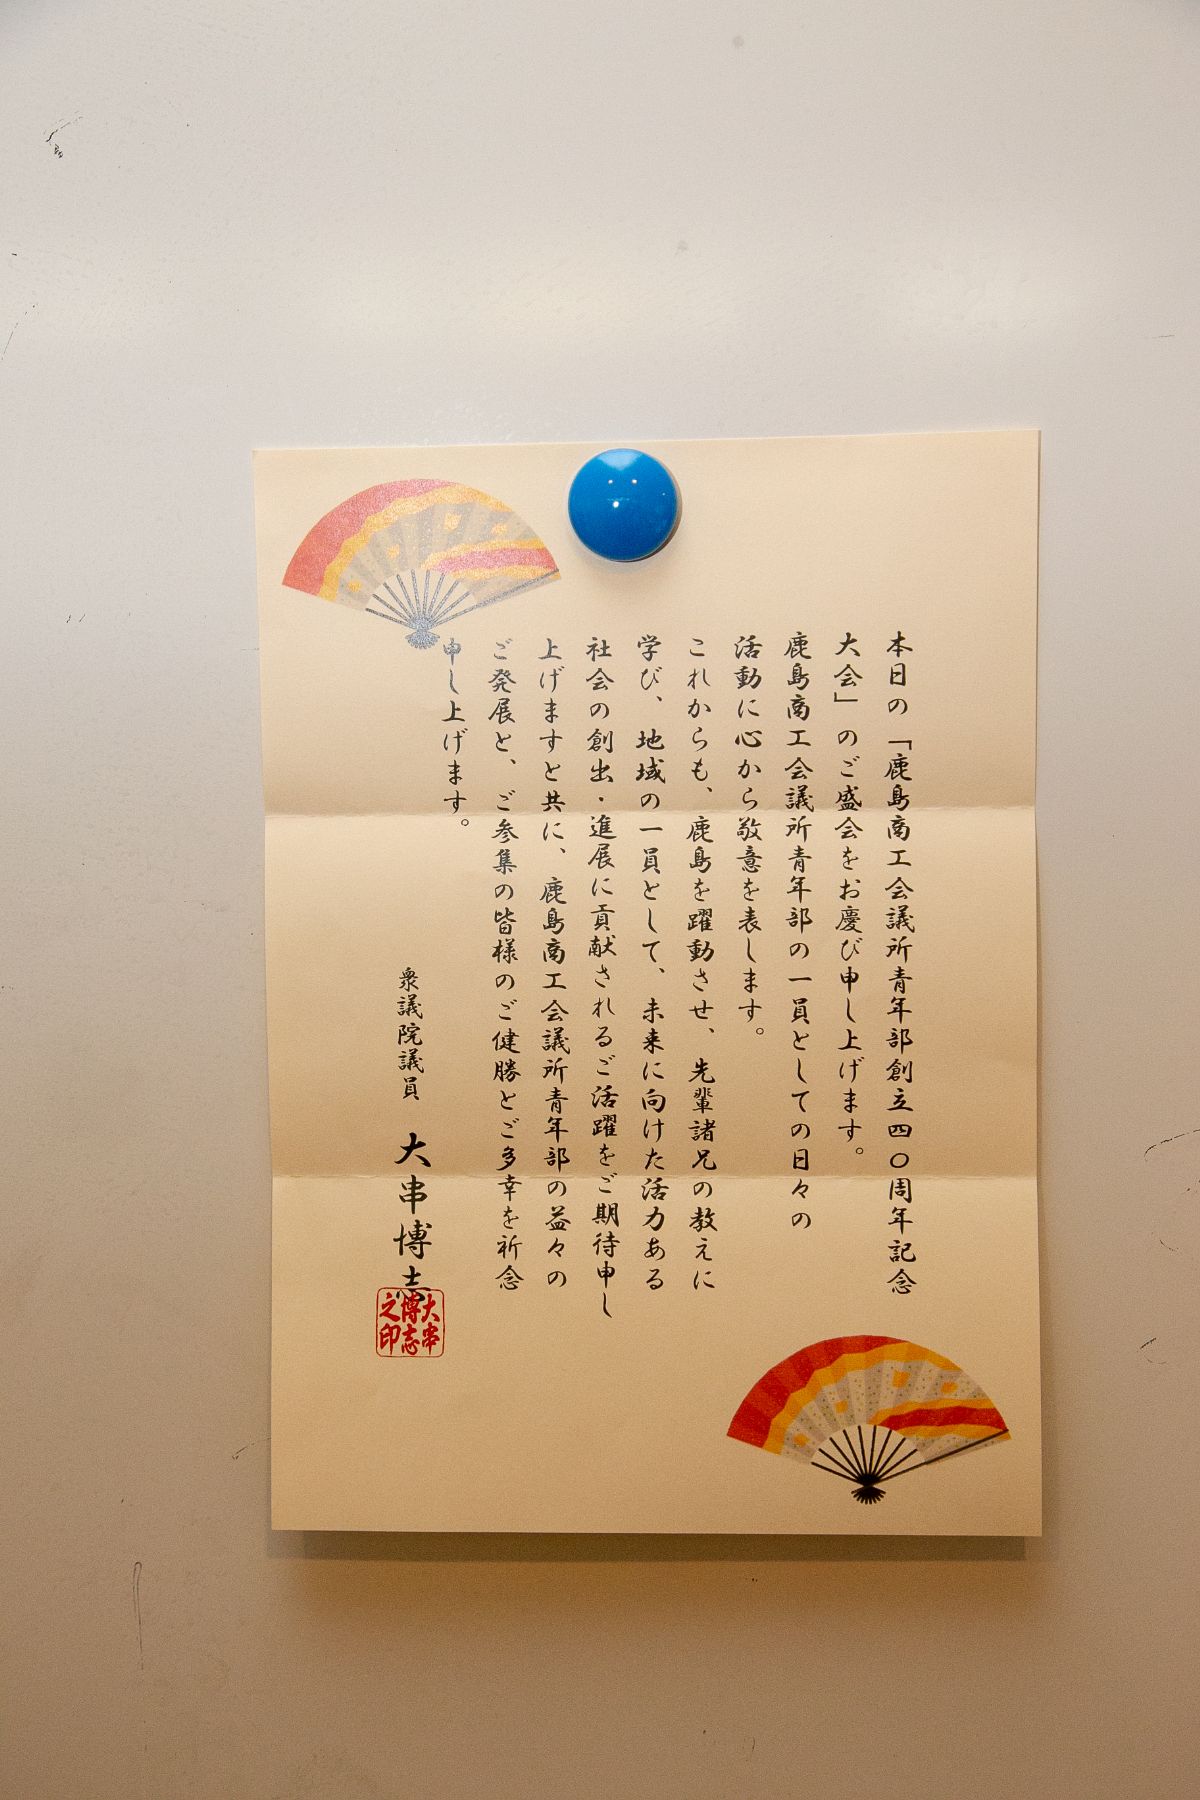 本日の「鹿島商工会議所青年部創立四〇周年記念
大会」のご盛会をお慶び申し上げます。
鹿島商工会議所青年部の一員としての日々の
活動に心から敬意を表します。
これからも、鹿島を躍動させ、先輩諸兄の教えに
学び、地域の一員として、未来に向けた活力ある
社会の創出・進展に貢献されるご活躍をご期待申し
上げますと共に、鹿島商工会議所青年部の益々の
ご発展と、ご参集の皆様のご健勝とご多幸を祈念
申し上げます。
衆議院議員 大串博志
大串
博志
之印